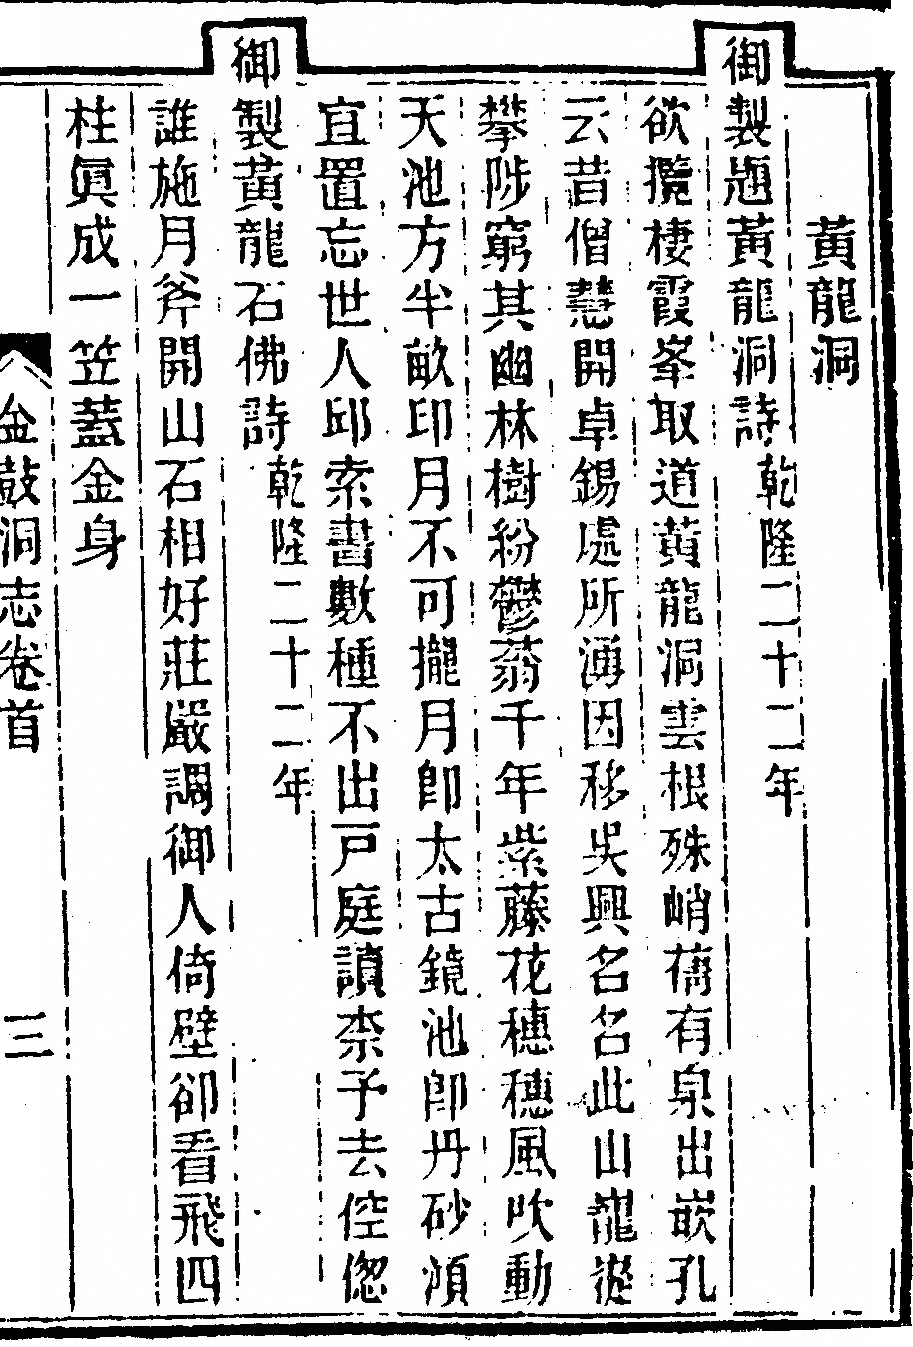 黃龍洞
御製題黃龍洞詩乾隆二十二年
欲攬棲霞峯取道黃龍洞雲根殊峭蒨有泉出嵌孔
云昔僧慧開卓錫處所湧因移吳興名名此山寵嵷
攀陟窮其幽林樹紛鬱蓊千年紫藤花穗穗風吹動
天池方半畝印月不可攏月卽太古鏡池卽丹砂澒
宜置忘世人邱索書數種不出戸庭讀柰予去倥偬
御製黃龍石佛詩乾隆二十二年
誰施月斧開山石相好莊嚴調御人倚壁卻看飛四
柱眞成一笠蓋金身
金鼓洞志卷首
三